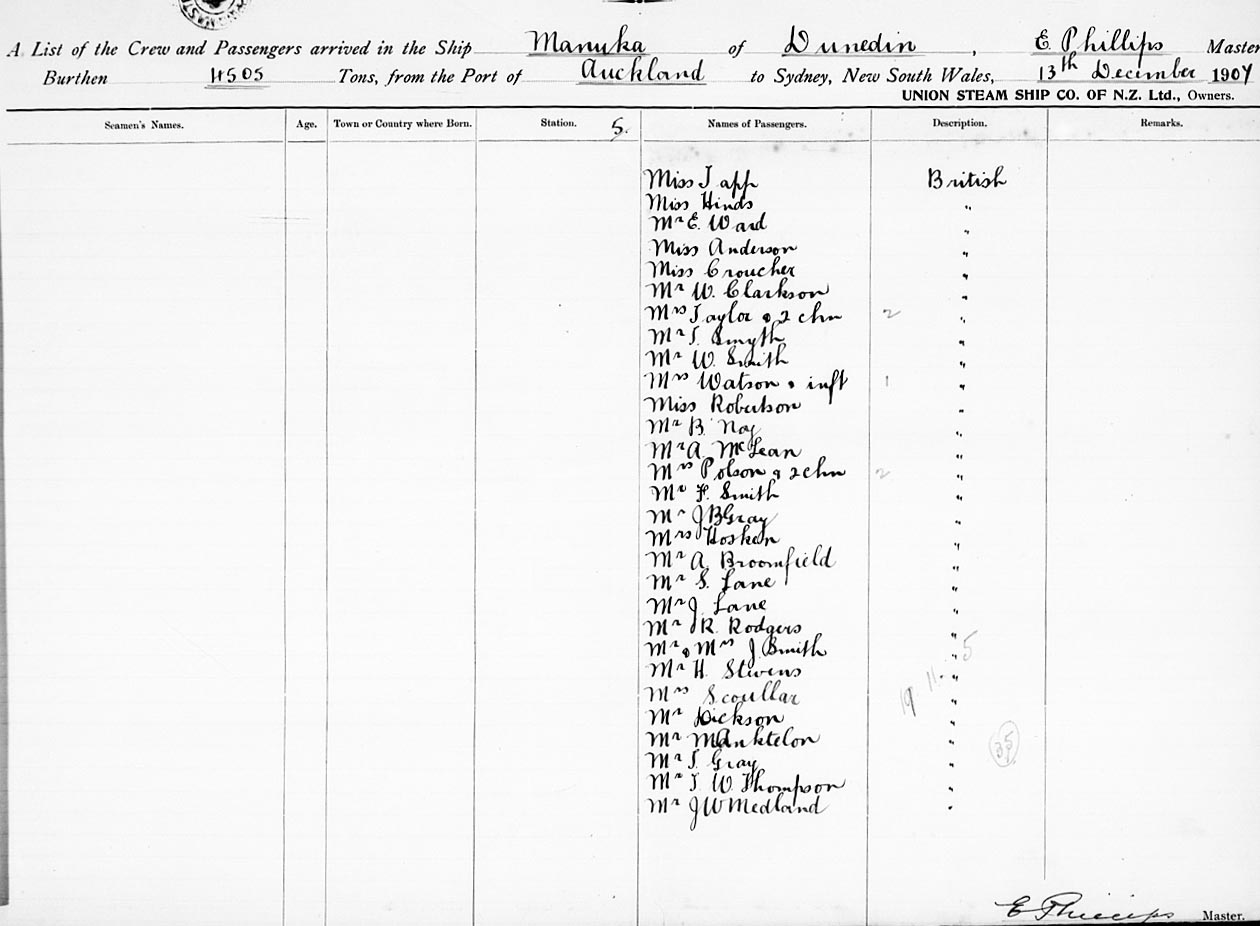 A List of the Crew and Passengers arrived in the Ship Manuka of Dunedin, E. Phillips Master
Burthen 4505 Tons, from the Port of Auckland to Sydney, New South Wales, 13th December 1907
UNION STEAM SHIP CO. OF N.Z. Ltd., Owners.
Seamen's Names. Age. Town or Country where Born. Station. 5. Names of Passengers. Description. Remarks.
Miss Tapp British
Miss Hinds "
Mr E. Ward "
Miss Anderson "
Miss Croucher "
Mr W. Clarkson "
Mrs Taylor & 2 chn 2 "
Mr S. Smyth "
Mr W. Smith "
Mrs Watson & inft 1 "
Miss Robertson "
Mr B. "
Mr A. McLean "
Mrs Polson & 2 chn 2 "
Mr F. Smith "
Mr J B Gray "
Mrs Hosken "
Mr A. Broomfield "
Mr S. Lane "
Mr J. Lane "
Mr R. Rodgers "
Mr & Mrs J. Smith " 5
Mr H. Stevens 11 "
Mrs Scoullar 19 "
Mr Dickson "
Mr Manktelon "
Mr S. Gray " 35
Mr T. W. Thompson "
Mr J W Medland "
E Phillips Master.